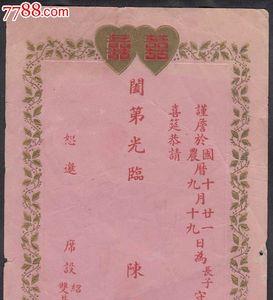 7788.com
囍 囍
謹詹於國曆十月廿一日為長子守
農九十九
喜筵恭請
闔第光臨 陳
恕邀
席設紹
雙